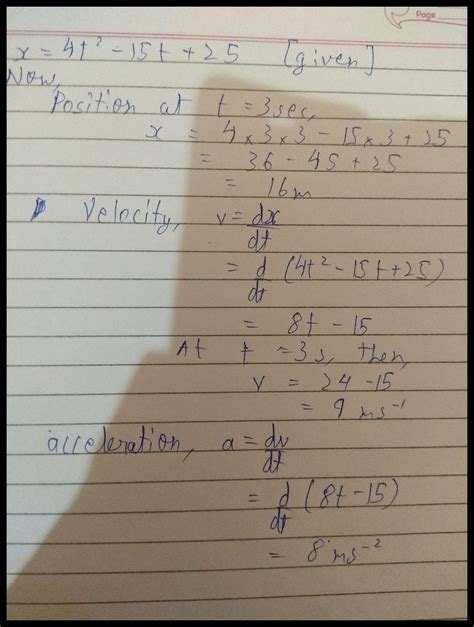 Page
x = 4t² - 15t + 25 [given]
Now,
Position at t = 3 sec,
x = 4 × 3 × 3 - 15 × 3 + 25
= 36 - 45 + 25
= 16m
Velocity, v = dx/dt
= d/dt (4t² - 15t + 25)
= 8t - 15
At t = 3s, then,
v = 24 - 15
= 9 ms⁻¹
acceleration, a = dv/dt
= d/dt (8t - 15)
= 8 ms⁻²